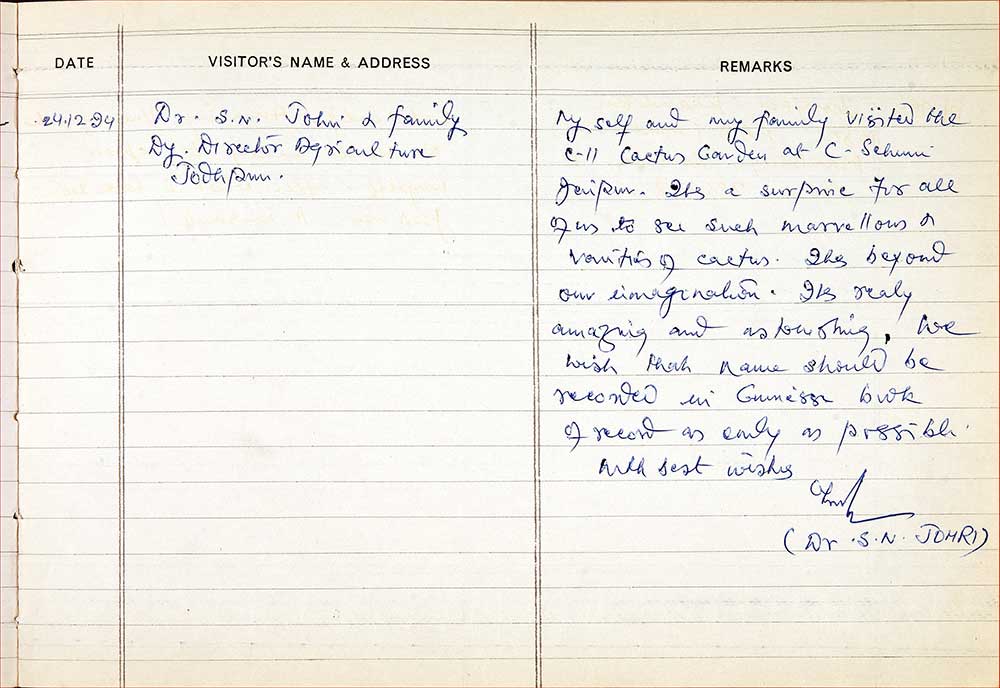 DATE
VISITOR'S NAME & ADDRESS
REMARKS
24.12.94
Dr. S.N. Johri & family
Dy. Director Agriculture
Jodhpur.
My self and my family visited the
C-11 Cactus Garden at C-Scheme
Jaipur. Its a surprise for all
of us to see such marvellous &
varities of cactus. Its beyond
our imagination. Its realy
amazing and astonishing, we
wish that name should be
recorded in book
of record as early as possible.
With best wishes
(Dr. S.N. JOHRI)